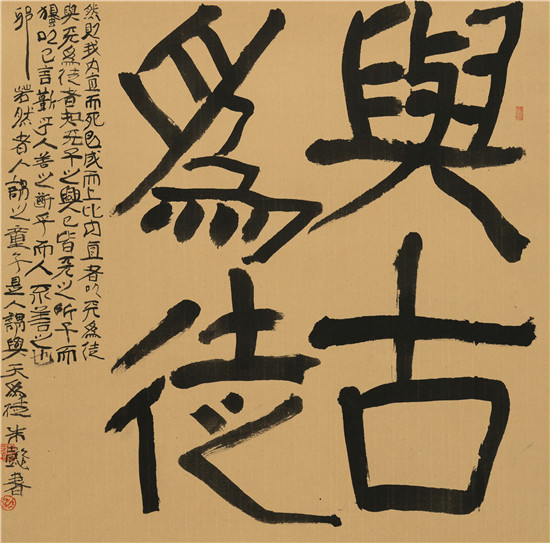 與古
爲徒
然則我內直而外曲成而上比內直者以天爲徒
與天爲徒者知天子之與己皆天之所子而
獨以己言蘄乎人善之蘄乎而人不善之也
邪若然者人謂之童子是人謂與天爲徒